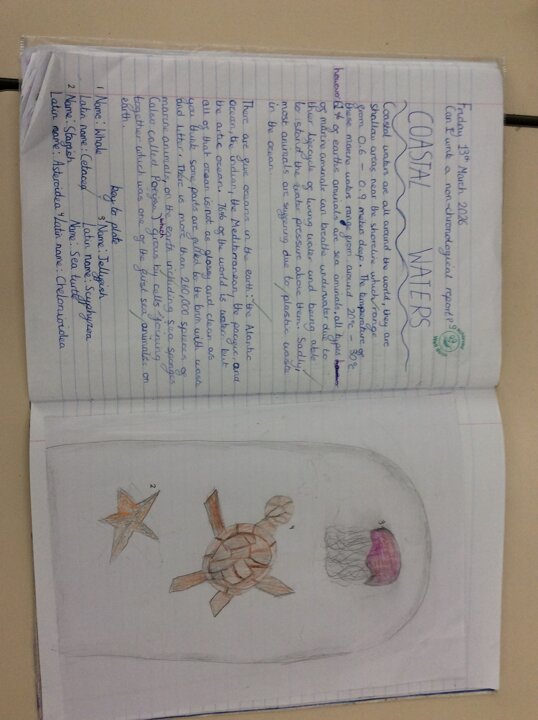 Friday 13th March 2026
Can I write a non-chronological report?
COASTAL WATERS
Coastal waters are all around the world, they are
shallow areas near the shoreline which range
from 0.6 - 0.9 meters deep. The temperature of
these marine waters range from around 20°c - 30°c
however 1% of earths animals are sea animals, all types
of marine animals can breathe underwater due to
their lifecycle of living water and being able
to stand the water pressure above them. Sadly,
most animals are suffering due to plastic waste
in the ocean.
There are five oceans in the earth, the Atlantic
ocean, the indian, the Mediterranean, the pacific and
the artic ocean. 70% of the world is water but
all of that ocean is not as glossy and clean as
you think some parts are filled to the brim with waste
and litter. There is more than 200,000 species of
marine animals on the earth including sea sponges
Called Porifera which by cells joining
together which was one of the first sea animals on
earth.
key to plate
1 Name: Whale
Latin name: Cetacea
2 Name: Starfish
Latin name: Asteroidea
3 Name: Jellyfish
Latin name: Scyphozoa
4 Name: Sea turtle
Latin name: Chelonioidea
3
4
2